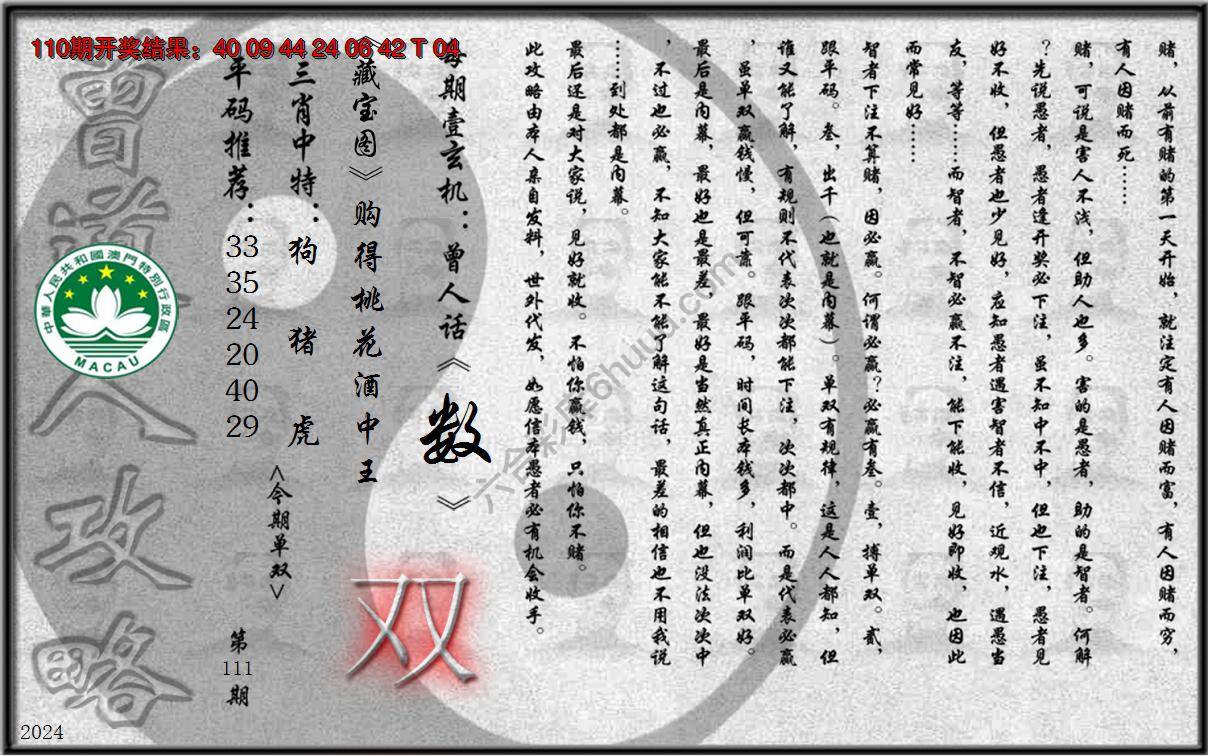 110期开奖结果：40 09 44 24 06 42 T 04
赌，从前有赌的第一天开始，就注定有人因赌而富，有人因赌而穷，
有人因赌而死……
赌，可说是害人不浅，但助人也多。害的是愚者，助的是智者。何解
？先说愚者，愚者逢开奖必下注，虽不知中不中，但也下注，愚者见
好不收，但愚者也少见好，应知愚者遇害智者不信，近观水，遇愚当
友，等等……而智者，不智必赢不注，能下能收，见好即收，也因此
而常见好……
智者下注不算赌，因必赢。何谓必赢？必赢有叁。壹，搏单双。贰，
跟平码。叁，出千（也就是内幕）。单双有规律，这是人人都知，但
谁又能了解，有规则不代表次次都能下注，次次都中。而是代表必赢
，虽单双赢钱慢，但可靠。跟平码，时间长本钱多，利润比单双好。
最后是内幕，最好也是最差，最好是当然真正内幕，但也没法次次中
，不过也必赢，不知大家能不能了解这句话，最差的相信也不用我说
……到处都是内幕。
最后还是对大家说，见好就收。不怕你赢钱，只怕你不赌。
此攻略由本人亲自发料，世外代发，如愿信本愚者必有机会收手。
每期壹玄机：曾人话《数》
《藏宝图》购得桃花酒中王
三肖中特：狗 猪 虎
平码推荐：33 35 24 20 40 29
<今期单双>
双
第111期
曾道人攻略
中華人民共和國澳門特別行政區
MACAU
六合彩库6huuu.com
2024